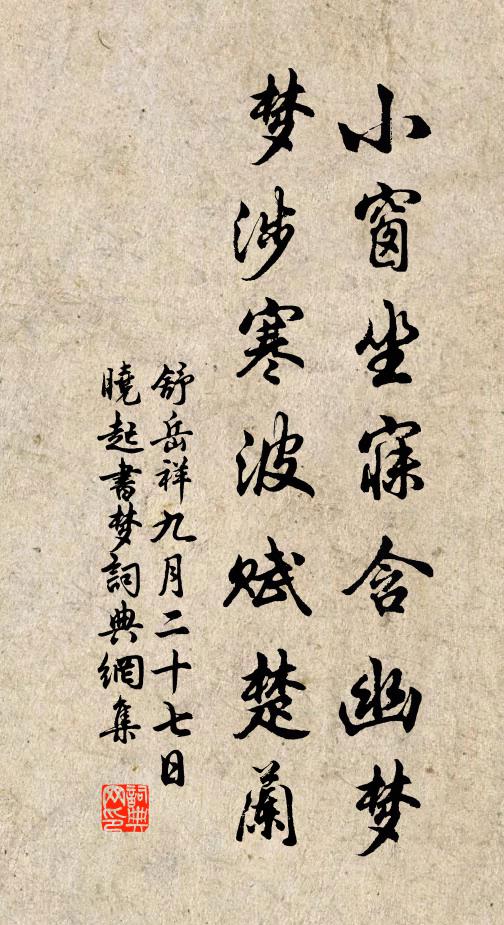 小窗坐寐含幽梦
梦涉寒波赋楚蘭
舒岳祥九月二十七日
曉起書梦詞典網集
詞典
网印